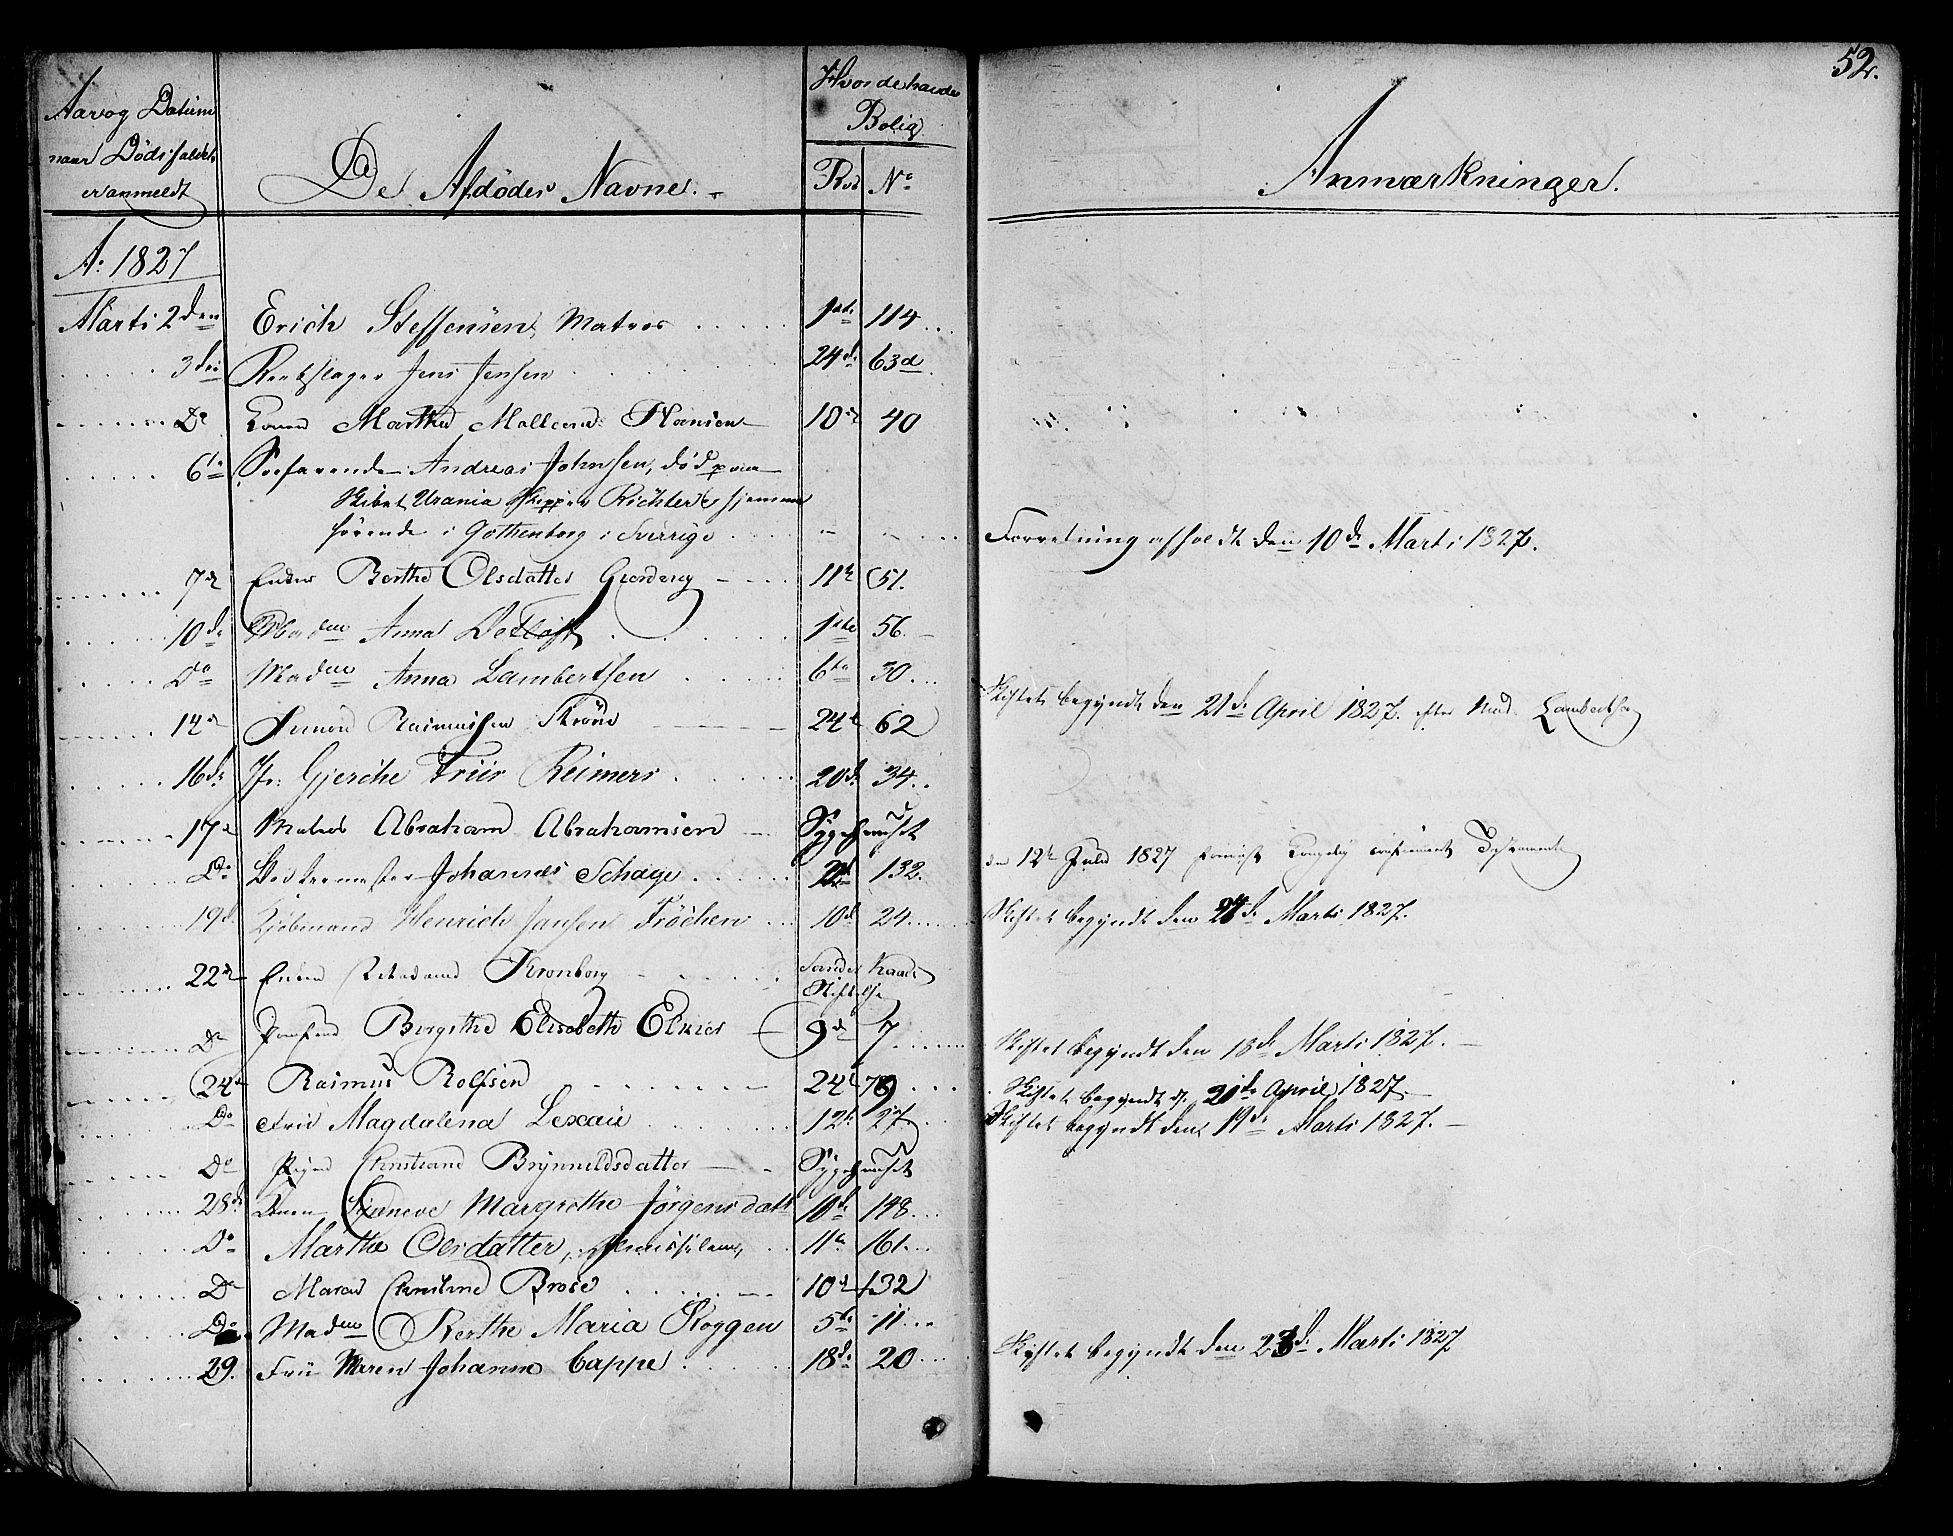 52.
Aar og Datum
naar Dödsfaldet
er anmeldt
De Afdödes Navne.
Hvor de havde
Bolig
Rod No
Anmærkninger.
Ao 1827
Marti 2den Erich Steffensen, Matros 1ste 114
3die Jens Jensen 24d 63d
Do Konen Marthe Hansen 10d 40
6te Søefarende Andreas Johnsen, död paa
Skibet Urania Skipper Richter hjemme
hörende i Gothenborg i Sverrige
Forretning afholdt den 10de Marti 1827.
7de Enken Berthe Olsdatter 11te 51.
10de Madme Anna 1ste 56.
Do Madme Anna Lambertsen 6te 30
Skiftet begyndt den 21de April 1827. efter Mad. Lambertsen
14de Rasmussen 24de 62
16de Jfr. Gjerche Friis Reimers 20de 34
17de Matros Abraham Abrahamsen Sygehuuset
Do Johannes Schage 2d 132.
den 12te Julii 1827
19de Kjöbmand Henrich Jansen Fröchen 10d 24
Skiftet begyndt den 24de Marti 1827.
22de Enken Kronborg Sander Kaaes
Stiftelse
Do Birgithe Elisabeth 9de 7
Skiftet begyndt den 18de Marti 1827.
24de Rasmus Rolfsen 24de 79
Skiftet begyndt d. 21de April 1827
Do Frue Magdalena Lexau 12te 27
Skiftet begyndt den 19de Marti 1827.
Do Pigen Brynnildsdatter Sygehuuset
28de Konen Margrethe Jörgensdatt 10de 148
Do Marthe Olsdatter, 11te 161
Do Maren Christine Brose 10de 132
Do Madme Berthe Maria Skoggen 5te 11
Skiftet begyndt den 23de Marti 1827
29. Frue Maren Johanne Cappe 18de 20